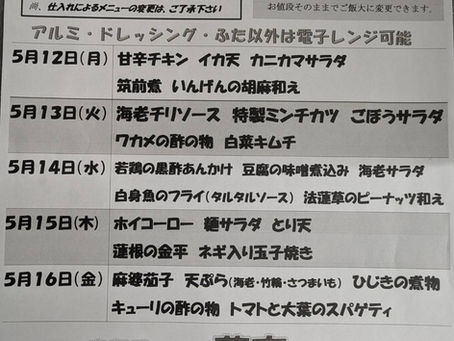 尚、仕入れによるメニューの変更は、ご了承下さい
お値段そのままでご飯大に変更できます。
アルミ・ドレッシング・ふた以外は電子レンジ可能
5月12日(月) 甘辛チキン イカ天 カニカマサラダ
筑前煮 いんげんの胡麻和え
5月13日(火) 海老チリソース 特製ミンチカツ ごぼうサラダ
ワカメの酢の物 白菜キムチ
5月14日(水) 若鶏の黒酢あんかけ 豆腐の味噌煮込み 海老サラダ
白身魚のフライ(タルタルソース) 法蓮草のピーナッツ和え
5月15日(木) ホイコーロー 麺サラダ とり天
蓮根の金平 ネギ入り玉子焼き
5月16日(金) 麻婆茄子 天ぷら(海老・竹輪・さつまいも) ひじきの煮物
キューリの酢の物 トマトと大葉のスパゲティ